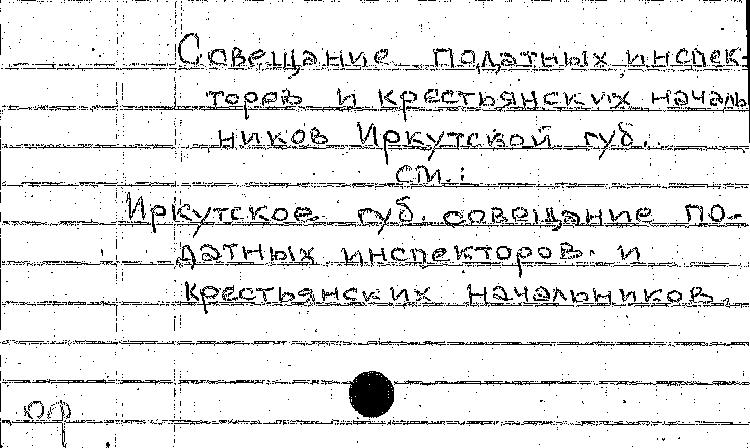 Совещание податных инспек-
торов и крестьянских началь
ников Иркутской губ..
см.:
Иркутское губ. совещание по-
датных инспекторов и
крестьянских начальников.
ор